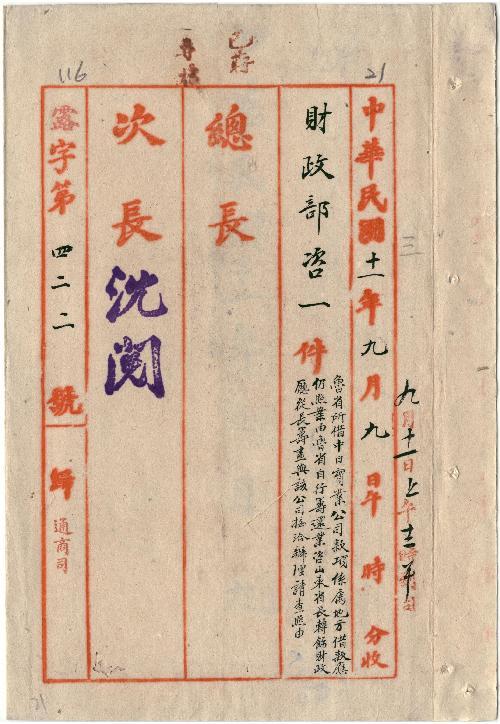 已存
116
21
中華民國十一年九月九日午 時 分收
九月十一日上午十二時
三
財政部咨一件
魯省所借中日實業公司款項係屬地方借款應
仍照業由魯省自行籌還業咨山東省長轉飭財政
廳從長籌畫與該公司接洽辦理請查照由
總長
次長
沈閱
露字第四二二號歸
通商司
21